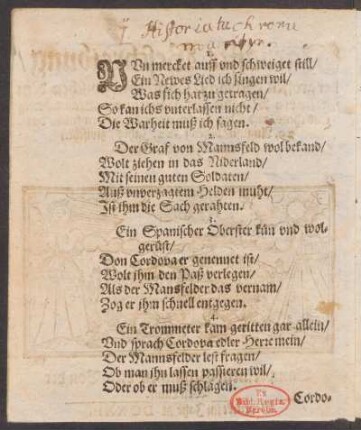 1.
NUn mercket auff vnd schweiget still/
Ein Newes Lied ich singen wil/
Was sich hat zu getragen/
So kan ichs vnterlassen nicht/
Die Warheit muß ich sagen.
2.
Der Graf von Mannsfeld wol bekand/
Wolt ziehen in das Niderland/
Mit seinen guten Soldaten/
Auß vnverzagtem Helden muht/
Ist ihm die Sach gerahten.
3.
Ein Spanischer Oberster kün vnd wol-
gerüst/
Don Cordova er genennet ist/
Wolt jhm den Paß verlegen/
Als der Mansfelder das vernam/
Zog er jhm schnell entgegen.
4.
Ein Trommeter kam geritten gar allein/
Vnd sprach Cordova edler Herre mein/
Der Mannsfelder lest fragen/
Ob man jhn lassen passieren wil/
Oder ob er muß schlagen.
Cordo-
Ex
Bibl. Regia
Berolin.